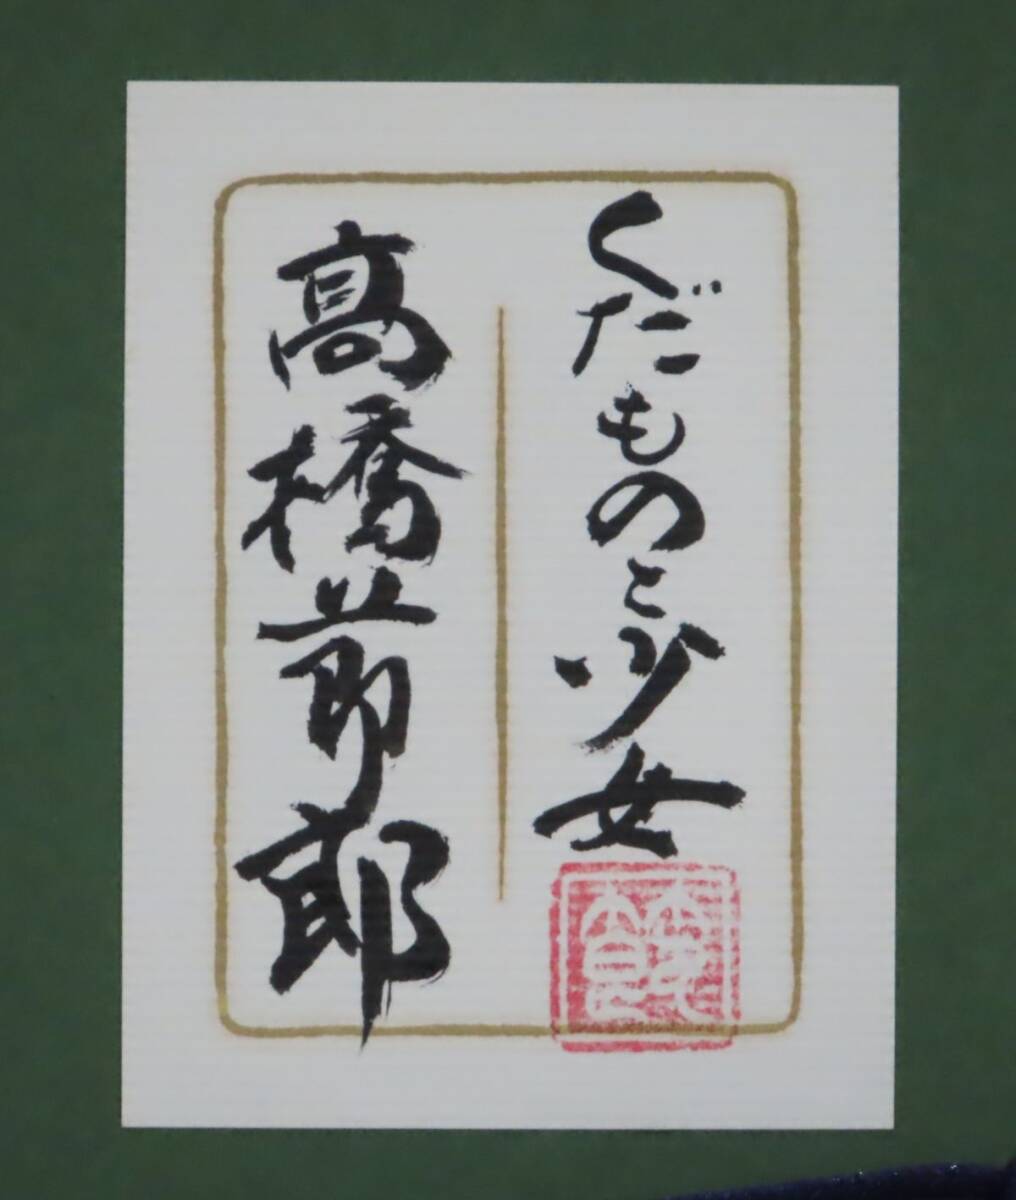 くだものと少女
高橋節郎